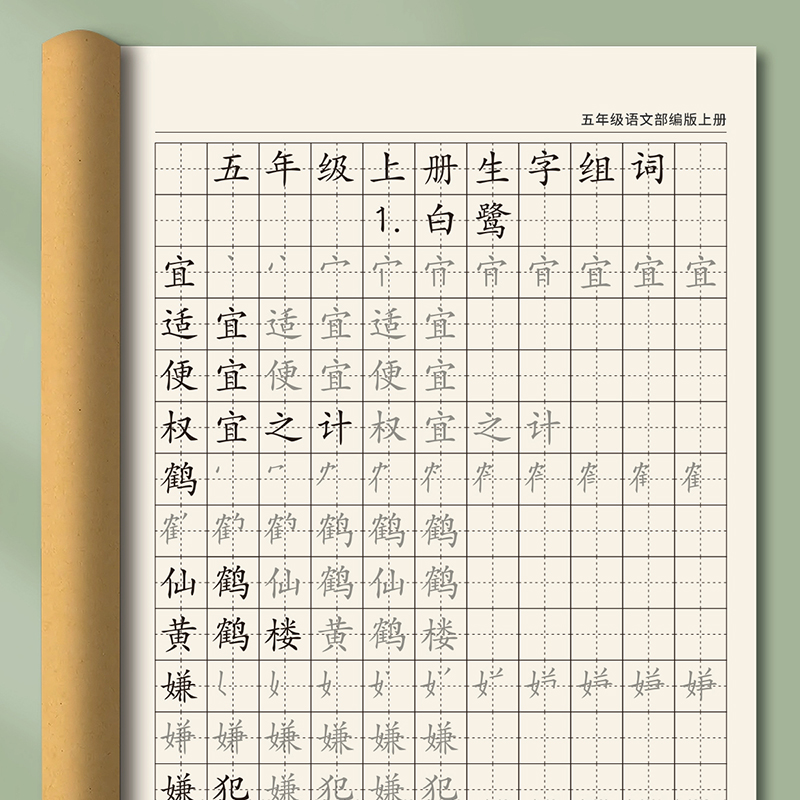 五年级语文部编版上册
五年级上册生字组词
1. 白鹭
宜 宜 宜 宜
适宜适宜适宜
便宜便宜便宜
权宜之计权宜之计
鹤
鹤 鹤 鹤
仙鹤仙鹤仙鹤
黄鹤楼黄鹤楼
嫌
嫌 嫌 嫌 嫌
嫌犯嫌犯嫌犯